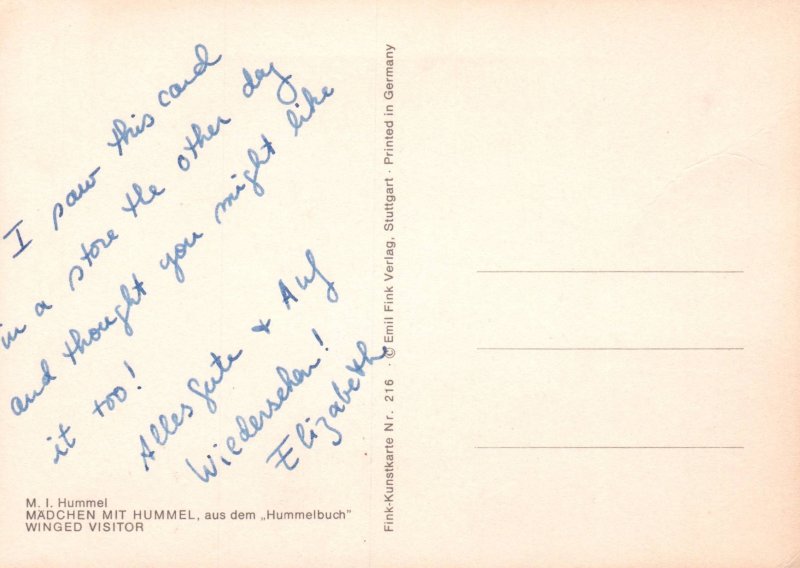 I saw this card
in a store the other day
and thought you might like
it too!
Alles Gute + Auf
Wiedersehen!
Elizabeth
M. I. Hummel
MÄDCHEN MIT HUMMEL, aus dem „Hummelbuch”
WINGED VISITOR
Fink-Kunstkarte Nr. 216 · © Emil Fink Verlag, Stuttgart · Printed in Germany